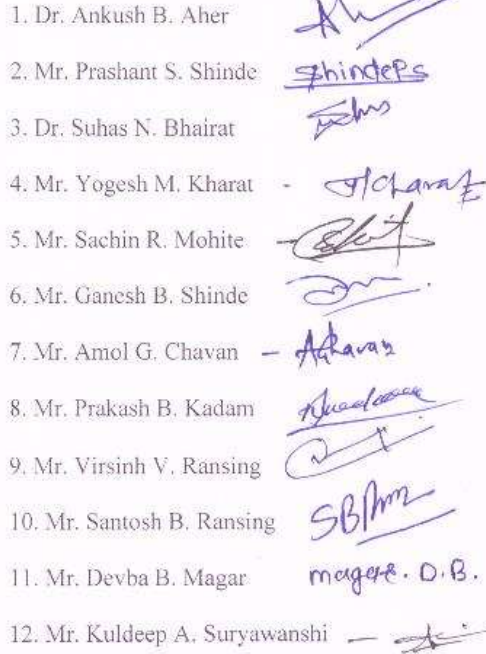 1. Dr. Ankush B. Aher
2. Mr. Prashant S. Shinde ShindePS
3. Dr. Suhas N. Bhairat
4. Mr. Yogesh M. Kharat -
5. Mr. Sachin R. Mohite
6. Mr. Ganesh B. Shinde
7. Mr. Amol G. Chavan - AGhavan
8. Mr. Prakash B. Kadam
9. Mr. Virsinh V. Ransing
10. Mr. Santosh B. Ransing
11. Mr. Devba B. Magar magare. D.B.
12. Mr. Kuldeep A. Suryawanshi -